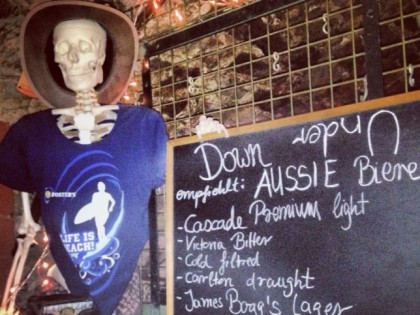 FOSTER'S
LIFE IS
Down Under
empfiehlt: AUSSIE Biere
-Cascade Premium light
-Victoria Bitter
-Cold filtred
-Carlton draught
-James Boag's Lager